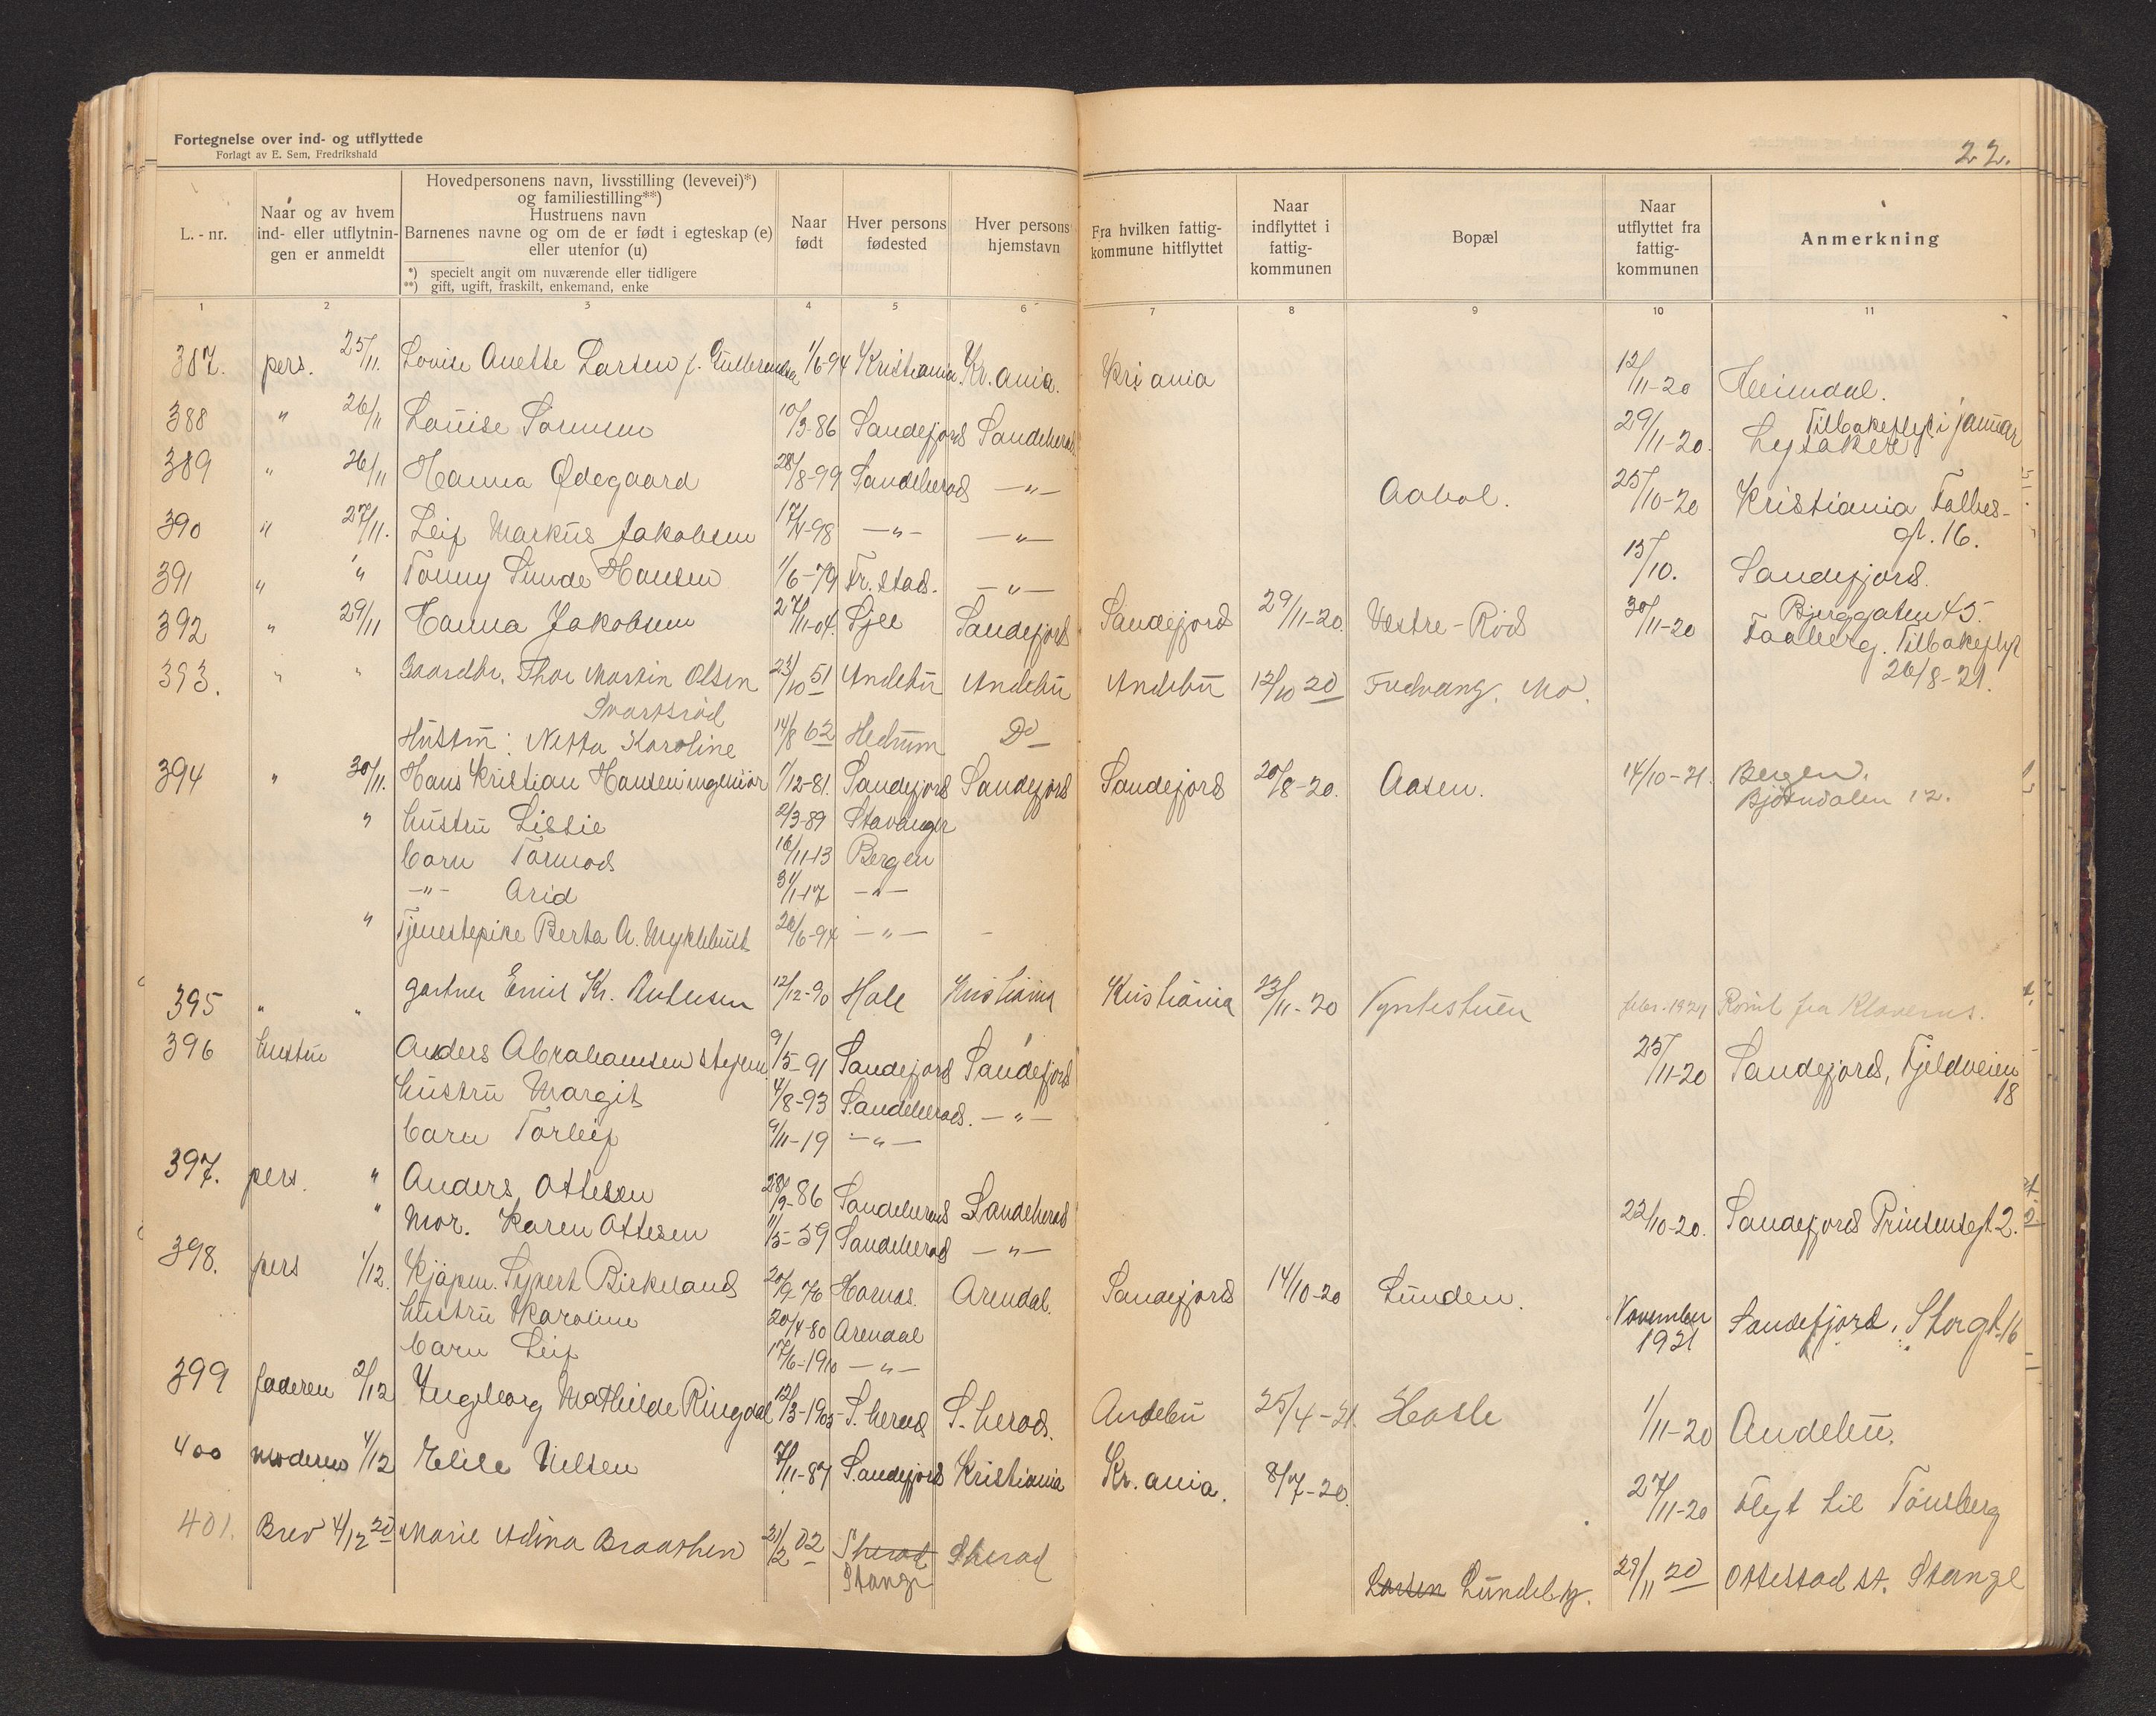 Fortegnelse over ind- og utflyttede
Forlagt av E. Sem, Fredrikshald
22.
L.-nr.
Naar og av hvem ind- eller utflytningen er anmeldt
Hovedpersonens navn, livsstilling (levevei)*)
og familiestilling**)
Hustruens navn
Barnenes navne og om de er født i egteskap (e)
eller utenfor (u)
*) specielt angit om nuværende eller tidligere
**) gift, ugift, fraskilt, enkemand, enke
Naar født
Hver persons fødested
Hver persons hjemstavn
Fra hvilken fattigkommune hitflyttet
Naar indflyttet i fattigkommunen
Bopæl
Naar utflyttet fra fattigkommunen
Anmerkning
1 2 3 4 5 6 7 8 9 10 11
387. pers. 25/11. Lovise Anette Larsen f. 1/6-94 Kristiania Kr.ania. Kriania 12/11-20 Heimdal.
388 " 26/11 Louise Sörensen 10/3-86 Sandefjord Sandeherad 29/11-20. Lysaker Tilbakeflyt i januar
389 " 26/11 Hanna Ødegaard 28/8-99 Sandeherad —"— Aabol. 25/10-20 Kristiania Falbes-
gt. 16.
390 " 27/11. Leif Markus Jakobsen 17/4-98 —"— —"— 15/10. Sandefjord.
391 " " Tonny Sunde Hansen 1/6-79 Fr.stad. —"— Bjerggaten 45.
392 " 29/11 Hanna Jakobsen 27/11-04. Sjee Sandefjord Sandefjord 29/11-20. Vestre-Röd 30/11-20 Faaberg. Tilbakeflyt
26/8-21.
393. " " Gaardbr. Thor Martin Olsen 23/10 51 Andebu Andebu Andebu 12/10 20 Fredvang. Mo.
Svartsrød
Hustru: Netta Karoline 14/8 62 Hedrum Do
394 " 30/11. Hans Kristian Hansen ingeniör 1/12-81. Sandefjord Sandefjord Sandefjord 20/8-20. Aasen. 14/10-21. Bergen.
Bjørndalen 12.
" hustru Lissie 2/3-89 Stavanger
barn Tormod 16/11-13 Bergen
—"— Arid 31/1-17 —"—
" Tjenestepike Berta A. Myklebust 26/6-94 —"—
395 " " gartner Emil Kr. Antensen 12/12-90 Hole Kristiania Kristiania 23/11-20 febr. 1921 Rømt fra Klaverns.
396 hustru Anders Abrahamsen styrm. 9/5-91 Sandefjord Sandefjord 25/11-20 Sandefjord, Fjeldveien
18
hustru Margit 4/8-93 Sandeherad. —"—
barn Torleif 9/11-19 —"—
397. pers. " Anders Ottesen 28/9-86 Sandeherad Sandeherad 22/10-20. Sandefjord Prinsensgt 2.
" mor. Karen Ottesen 11/5-59 Sandeherad —"—
398. pers 1/12. Kjøpm. Sypert Birkeland 20/9-76 Hornes. Arendal. Sandefjord 14/10-20 Lunden. November
1921 Sandefjord, Storgt. 16
hustru Karoline 20/4-80 Arendal
barn Leif 17/6-1910 —"—
399 faderen 2/12 Ingeborg Mathilde Ringdal 12/3-1905 S.herad S.herad. Andebu 25/4-21. Hasle 1/11-20 Andebu.
400 moderen 4/12 Elise Nilsen 7/11-87 Sandefjord Kristiania Kr.ania. 8/7-20. 27/11-20 Flyt til Tönsberg
401. Brev 4/12 20 Marie Adina Braathen 21/2 02 Sherad Sherad Larsen Lundeby. 29/11 20 Ottestad st. Stange
Stange